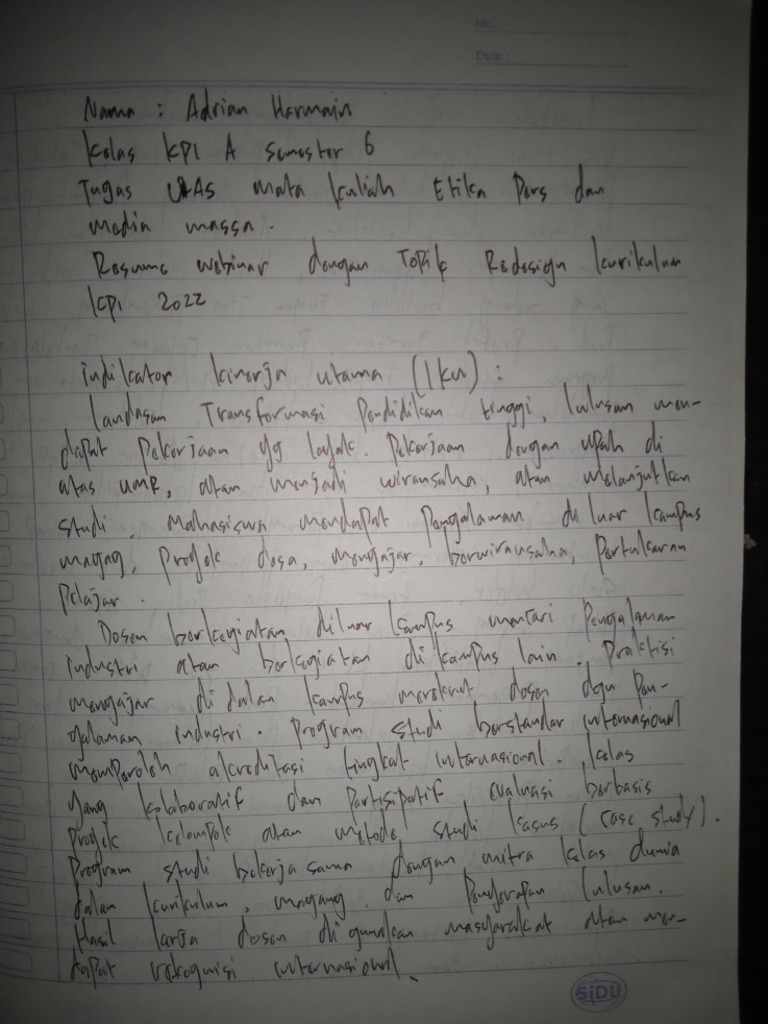 No.
Date :
Nama : Adrian Harmain
Kelas KPI A Semester 6
Tugas UAS mata kuliah Etika Pers dan
media massa.
Resume webinar dengan Topik Redesign kurikulum
KPI 2022
indikator kinerja utama (IKU) :
landasan Transformasi Pendidikan tinggi, lulusan men-
dapat pekerjaan yg layak. Pekerjaan dengan upah di
atas UMR, atau menjadi wirausaha, atau melanjutkan
studi. Mahasiswa mendapat Pengalaman di luar kampus
magag, Projek desa, mengajar, berwirausaha, Pertukaran
Pelajar.
Dosen berkegiatan diluar kampus mencari Pengalaman
industri atau berkegiatan di kampus lain. Praktisi
mengajar di dalam kampus merekrut dosen dgn Pen-
galaman industri. Program studi berstandar internasional
memperoleh akreditasi tingkat internasional. kelas
yang kolaboratif dan Partisipatif evaluasi berbasis
projek kelompok atau metode studi kasus (case study).
Program studi bekerja sama dengan mitra kelas dunia
dalam kurikulum, magang, dan Penyerapan lulusan.
Hasil kerja dosen digunakan masyarakat atau men-
dapat rekognisi internasional.
SiDU